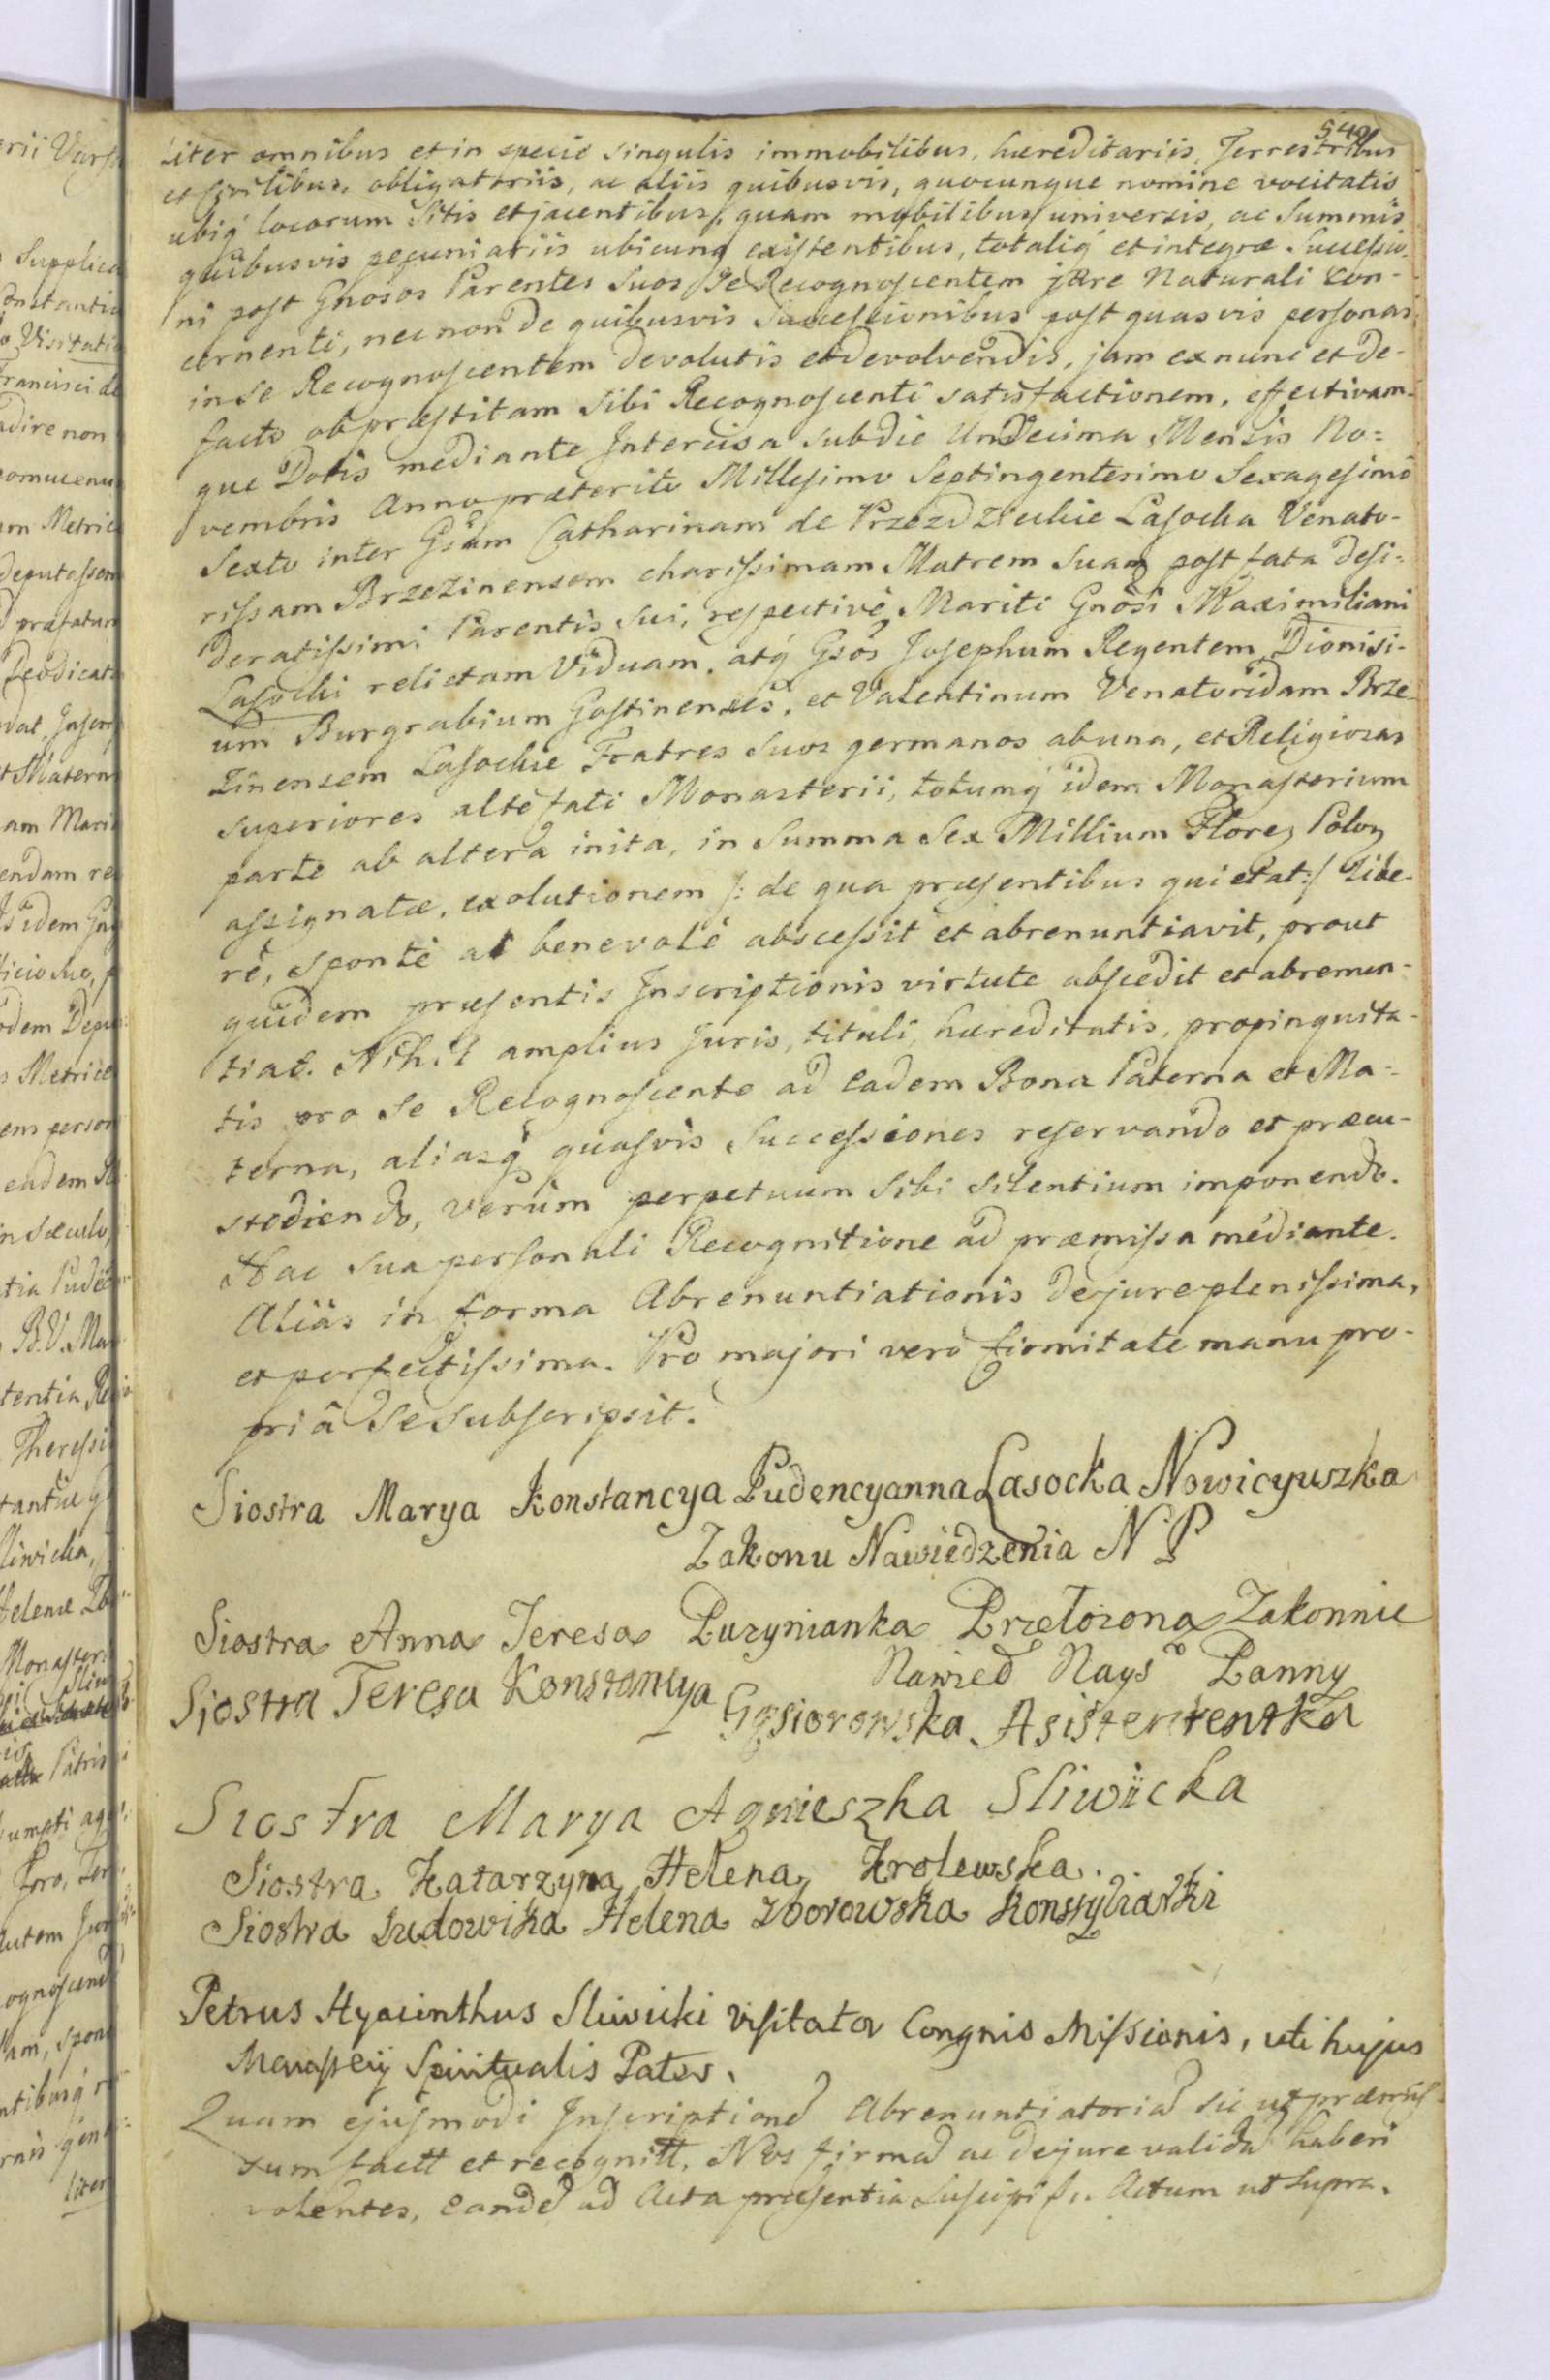 540
liter omnibus et in specie singulis immobilibus, hæreditariis, Terrestribus
et Civilibus, obligatoriis, ac aliis quibusvis, quocunque nomine vocitatis
ubiq́ locorum sitis et jacentibus, quam mobilibus universis, ac Summis
quibusvis pecuniariis ubicunq existentibus, totaliq́ et integræ Successio-
ni post Gnosos Parentes Suos Se Recognoscentem jure Naturali con-
cernenti, nec non de quibusvis Successionibus post quasvis personas
in Se Recognoscentem devolutis et devolvendis, jam ex nunc et de-
facto ob præstitam Sibi Recognoscenti satisfactionem, effectivam-
que Dotis mediante Intercisa sub die Undecima Mensis No=
vembris Anno præterito Millesimo Septingentesimo Sexagesimo
Sexto inter Gsam Catharinam de Przezdzieckie Lasocka Venato-
rissam Brzezinensem charissimam Matrem Suam post fata desi=
deratissimi Parentis Sui, respectivè Mariti Gnosi Maximiliani
Lasocki relictam Viduam, atq́ Gsos Josephum Regentem, Dionisi-
um Burgrabium Gostinenses, et Valentinum Venatoridam Brze-
zinensem Lasockie Fratres Suos germanos ab una, et Religiosas
Superiores altefati Monasterii, totumq́ idem Monasterium
parte ab altera inita, in Summa Sex Millium Floren Polon
assignatæ, exolutionem /: de qua præsentibus quietat :/ Libe-
rè, sponte ac benevolè abscessit et abrenuntiavit, prout
quidem præsentis Inscriptionis virtute abscedit et abrenun-
tiat. Nihil amplius Juris, tituli, hæreditatis, propinquita-
tis pro Se Recognoscente ad eadem Bona Paterna et Ma=
terna, aliasq́ quasvis Successiones reservando et præcu-
stodiendo, verùm perpetuum Sibi Silentium imponendo.
Hac Sua personali Recognitione ad præmissa mediante.
Aliàs in forma Abrenuntiationis de jure plenissima,
et perfectissima. Pro majori verò firmitate manu pro-
priâ Se Subscripsit.
Siostra Marya Konstancya Pudencyanna Lasocka Nowicyuszka
Zakonu Nawiedzenia N P
Siostra Anna Teresa Puzynianka Przełożona Zakonnic
Nawied Nays Panny
Siostra Teresa Konstancya Gąsiorowska Asistententka
Siostra Marya Agnieszka Sliwicka
Siostra Katarzyna Helena Krolewska.
Siostra Ludowika Helena Zborowska Konssyliarki
Petrus Hyacinthus Sliwicki Visitator Congnis Missionis, uti hujus
Monasterij Spiritualis Pater.
Quam ejusmodi Inscriptioned Abrenuntiatoriad sic ut præmis-
sum factt et recognitt, Nos firmad ac de jure validad haberi
volentes, eanded ad Acta præsentia Suscipi f. Actum ut Supra.